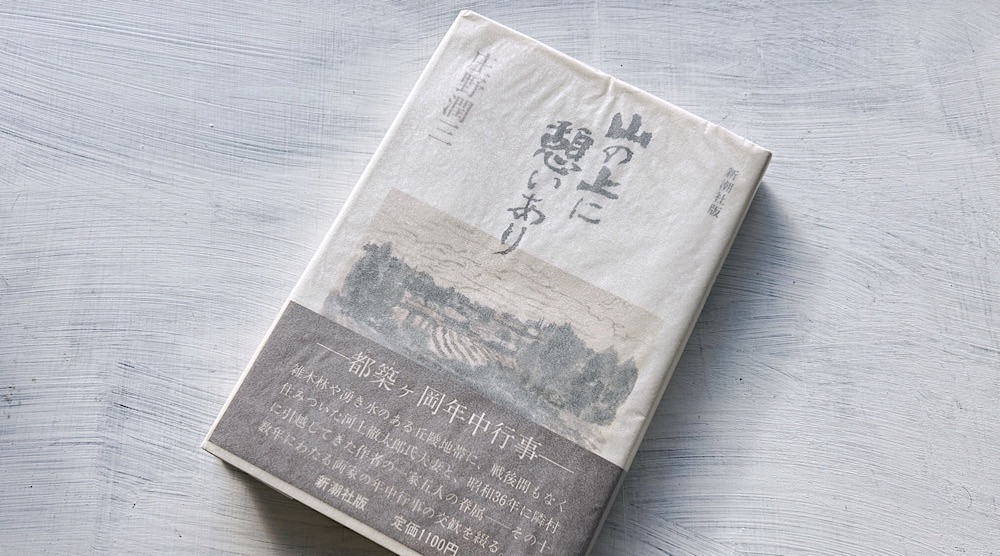 庄野潤三
山の上に
憩いあり
新潮社版
──都築ヶ岡年中行事──
雑木林や湧き水のある丘陵地帯に、戦後間もなく
住みついた河上徹太郎氏夫妻と、昭和36年に隣村
に引越してきた作者の一家五人の眷属──その十
数年にわたる両家の年中行事の交歓を綴る。
新潮社版
定価1100円